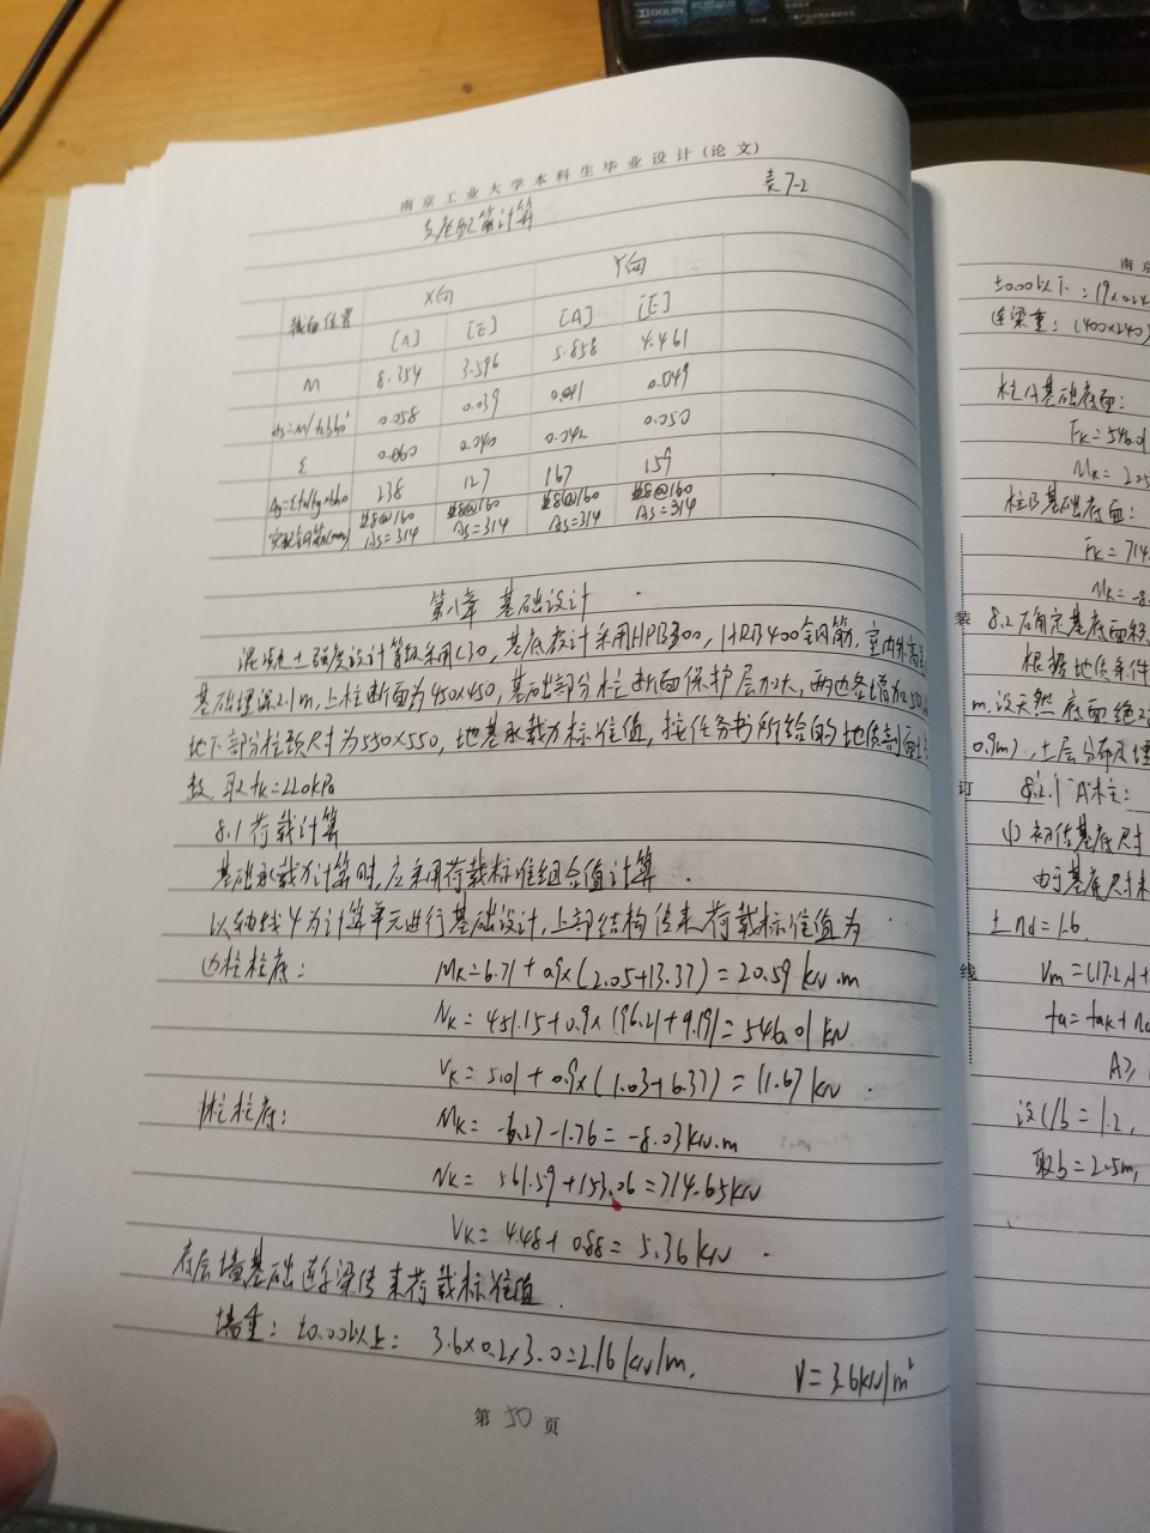 南京工业大学本科生毕业设计(论文)
支座配筋计算 表7-2
截面位置 X向 Y向
[A] [E] [A] [E]
M 8.354 3.596 5.858 4.461
0.058 0.039 0.041 0.049
ξ 0.060 0.040 0.042 0.050
238 127 167 159
8@160 8@160 8@160 8@160
实配钢筋(mm) As=314 As=314 As=314 As=314
第八章 基础设计
混凝土强度设计等级采用C30,基底设计采用HPB300,HRB400钢筋,室内外高
基础埋深2.1m,上柱断面为450×450,基础部分柱断面保护层加大,两边各增加50,
地下部分柱颈尺寸为550×550,地基承载力标准值,按任务书所给的地质剖面
数,取fk=220kPa
8.1荷载计算
基础承载力计算时,应采用荷载标准组合值计算.
以轴线4为计算单元进行基础设计,上部结构传来荷载标准值为
边柱柱底: Mk=6.71+0.9×(2.05+13.37)=20.59kN.m
Nk=451.15+0.9×(96.21+9.19)=546.01kN
Vk=5.01+0.9×(1.03+6.37)=11.67kN
柱柱底: Mk=-6.27-1.76=-8.03kN.m
Nk=561.59+153.06=714.65kN
Vk=4.48+0.88=5.36kN
底层墙基础连梁传来荷载标准值.
墙重:±0.00以上: 3.6×0.2×3.0=2.16kN/m, γ=3.6kN/m²
第50页
南京
±0.00以下:19×0.24
连梁重:(400×240)
柱A基础底面:
Fk=546.01
Mk=20.5
柱B基础底面:
Fk=714.
Mk=-8.
装
8.2确定基底面积
根据地质条件
m,设天然底面绝对
0.9m),土层分布及埋
订
8.2.1 A柱:
(1)初估基底尺寸
由于基底尺寸未
ηd=1.6.
线
γm=(17.2×1+
fa=fak+ηd
A≥
设l/b=1.2,
取b=2.5m,